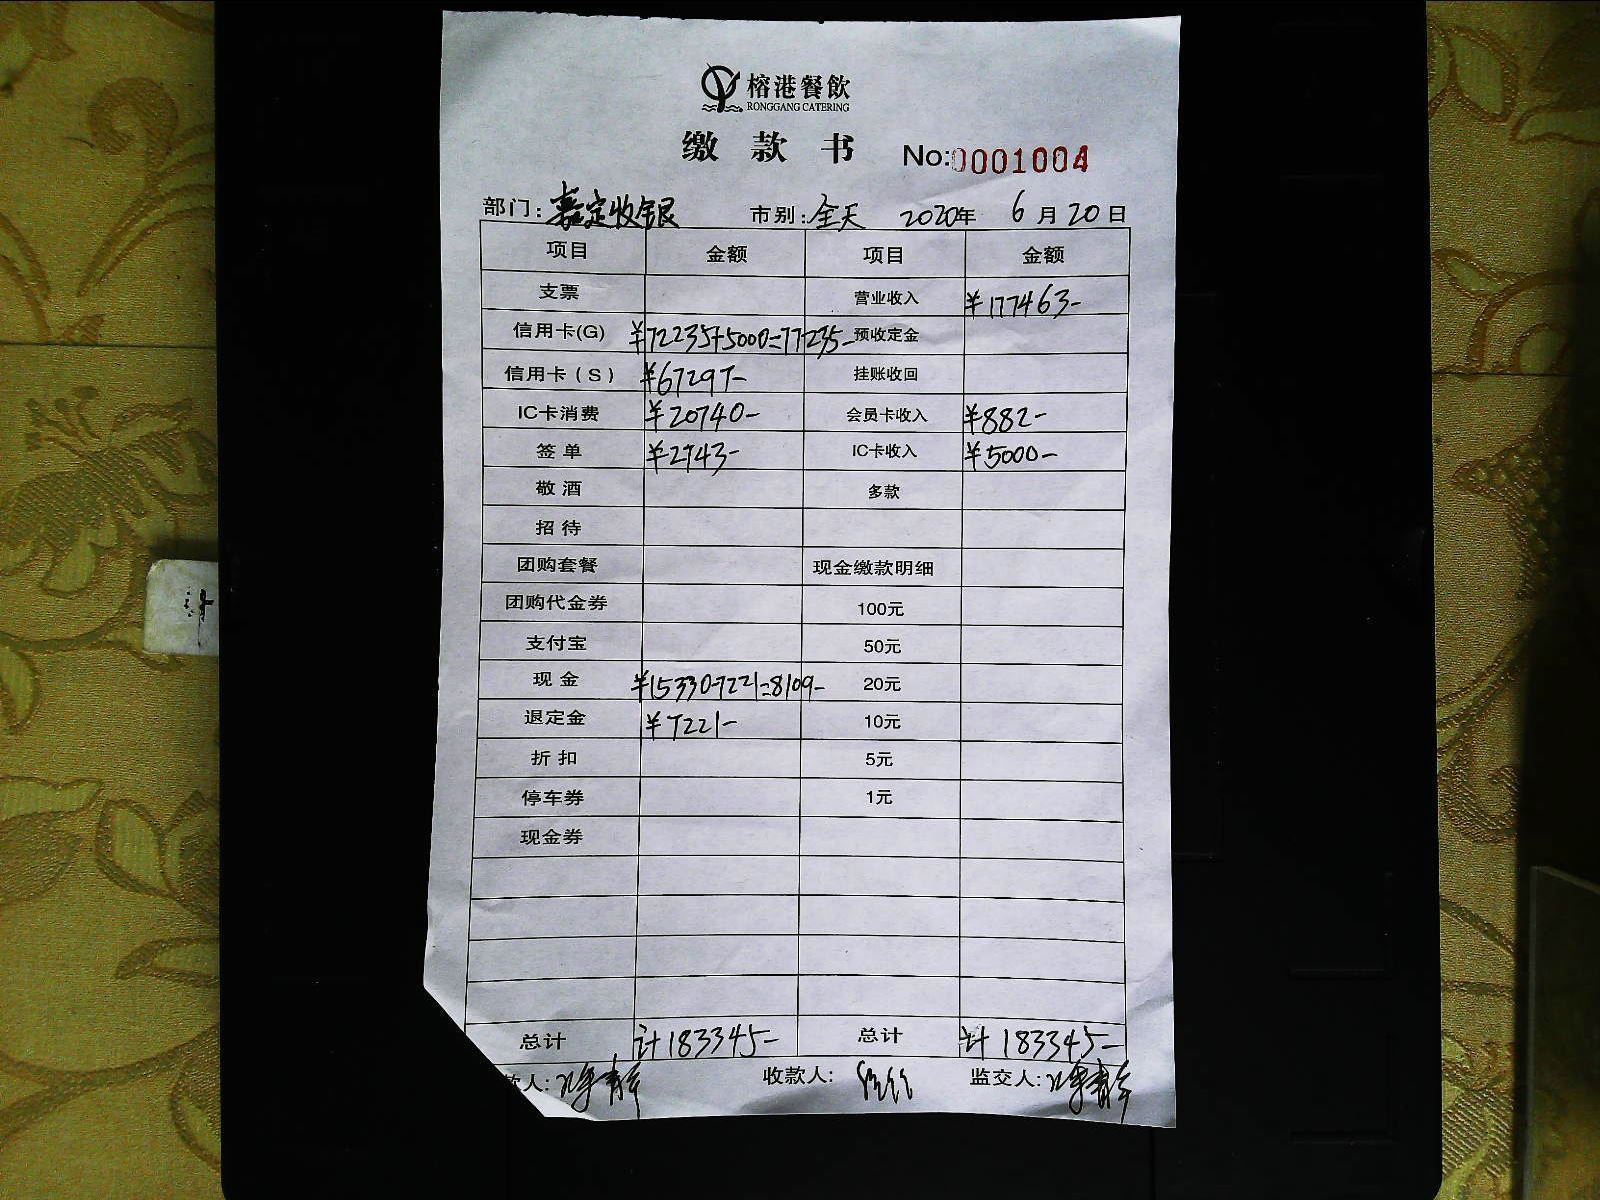 榕港餐飲
RONGGANG CATERING
缴款书 No:0001004
部门: 嘉定收银 市别: 全天 2020年 6月20日
项目 金额 项目 金额
支票 营业收入 ¥177463-
信用卡(G) ¥72235+5000=77235- 预收定金
信用卡(S) ¥67297- 挂账收回
IC卡消费 ¥20740- 会员卡收入 ¥882-
签单 ¥2743- IC卡收入 ¥5000-
敬酒 多款
招待
团购套餐 现金缴款明细
团购代金券 100元
支付宝 50元
现金 ¥15330-7221=8109- 20元
退定金 ¥7221- 10元
折扣 5元
停车券 1元
现金券
总计 计183345- 总计 计183345-
款人: 收款人: 监交人: